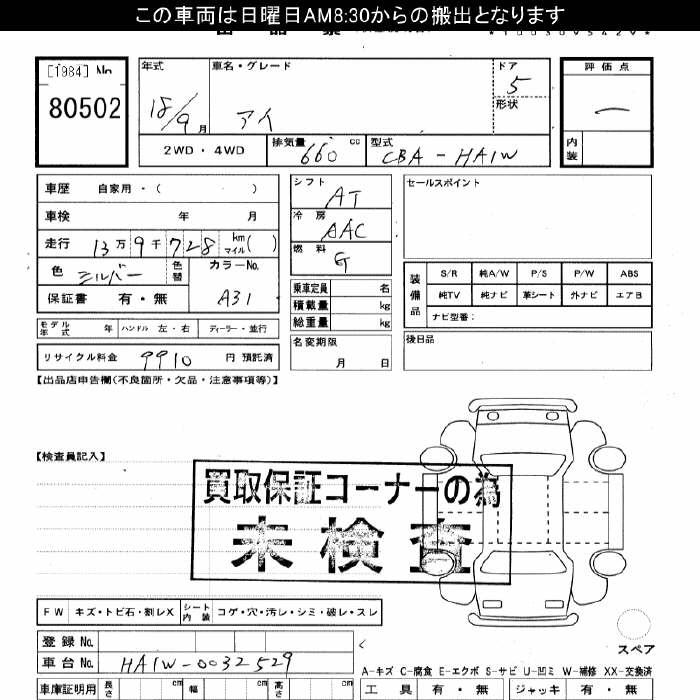 この車両は日曜日AM8:30からの搬出となります
[1984] No
80502
年式
18/9月
車名・グレード
アイ
ドア
5
形状
評価点
一
内装
2WD・4WD
排気量
660 cc
型式
CBA-HA1W
車歴 自家用・( )
車検 年 月
走行 13万9千728 km マイル( )
色 シルバー 色替
カラーNo.
A31
保証書 有・無
モデル年式 年 ハンドル 左・右 ディーラー・並行
リサイクル料金 9910 円 預託済
シフト
AT
冷房
AAC
燃料
G
乗車定員 名
積載量 kg
総重量 kg
名変期限
月 日
セールスポイント
装備品
S/R 純A/W P/S P/W ABS
純TV 純ナビ 革シート 外ナビ エアB
ナビ型番:
後日品
【出品店申告欄(不良箇所・欠品・注意事項等)】
【検査員記入】
買取保証コーナーの為
未検査
FW キズ・トビ石・割レX シート内装 コゲ・穴・汚レ・シミ・破レ・スレ
登録No.
車台No. HA1W-0032529
スペア
A-キズ C-腐食 E-エクボ S-サビ U-凹ミ W-補修 XX-交換済
車庫証明用 長さ cm 幅 cm 高さ cm
工具 有・無 ジャッキ 有・無